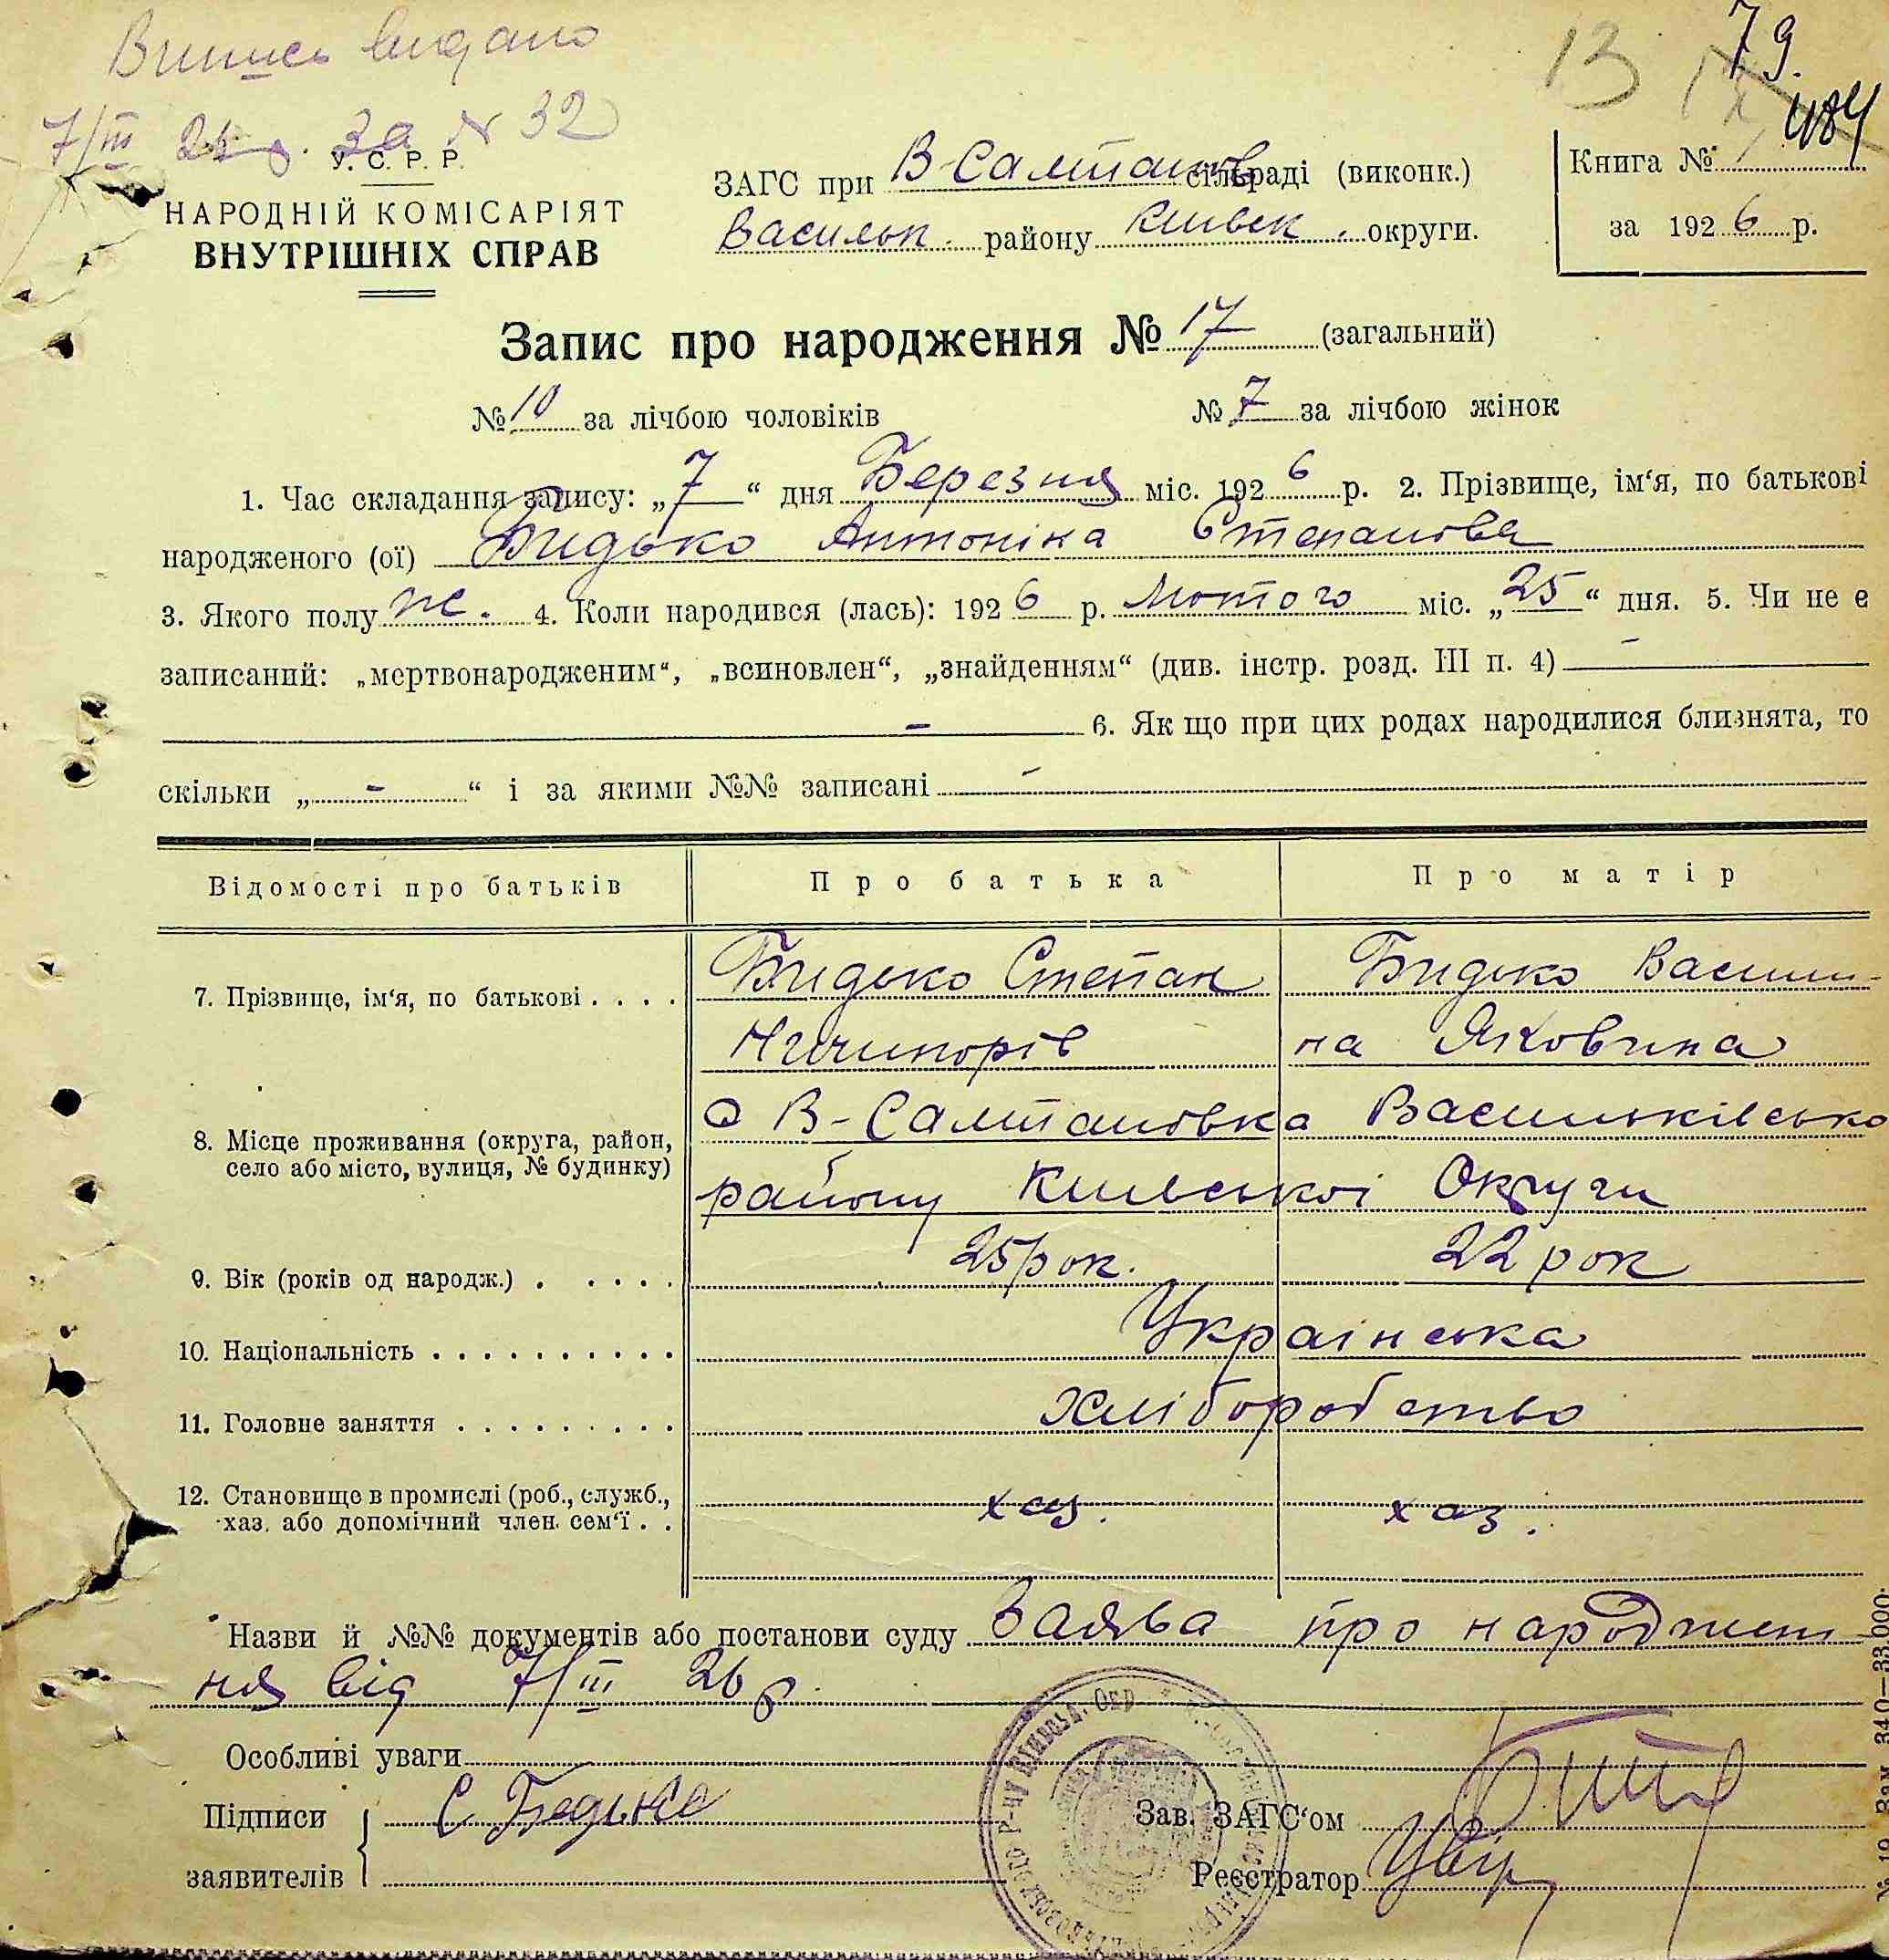 Випись видано
13 79.
7/III 26 р. За № 32
484
У. С. Р. Р.
НАРОДНІЙ КОМІСАРІЯТ
ВНУТРІШНІХ СПРАВ
ЗАГС при В-Салтанів сільраді (виконк.)
Васильк. району Київськ. округи.
Книга №
за 1926 р.
Запис про народження № 17 (загальний)
№ 10 за лічбою чоловіків № 7 за лічбою жінок
1. Час складання запису: „7“ дня Березня міс. 1926 р. 2. Прізвище, ім‘я, по батькові
народженого (ої) Бидько Антоніна Степанова
3. Якого полу ж. 4. Коли народився (лась): 1926 р. Лютого міс. „25“ дня. 5. Чи не є
записаний: „мертвонародженим“, „всиновлен“, „знайденням“ (див. інстр. розд. III п. 4) –
– 6. Як що при цих родах народилися близнята, то
скільки „ - “ і за якими №№ записані -
Відомості про батьків Про батька Про матір
7. Прізвище, ім‘я, по батькові . . . . Бидько Степан Бидько Васили-
Ничипорів на Яковина
с В-Салтановка Васильківсько
8. Місце проживання (округа, район,
село або місто, вулиця, № будинку)
району Київської Округи
9. Вік (років од народж.) . . . . . 25 рок. 22 рок
10. Національність . . . . . . . . . . Українська
11. Головне заняття . . . . . . . . . Хліборобство
12. Становище в промислі (роб., служб.,
хаз. або допомічний член. сем‘ї . . хаз. хаз.
Назви й №№ документів або постанови суду Заява про народжен
ня від 7/III 26 р.
Особливі уваги
Підписи
заявителів
С Бедько
Зав. ЗАГС‘ом
Реєстратор
Зам. 340—33.000.